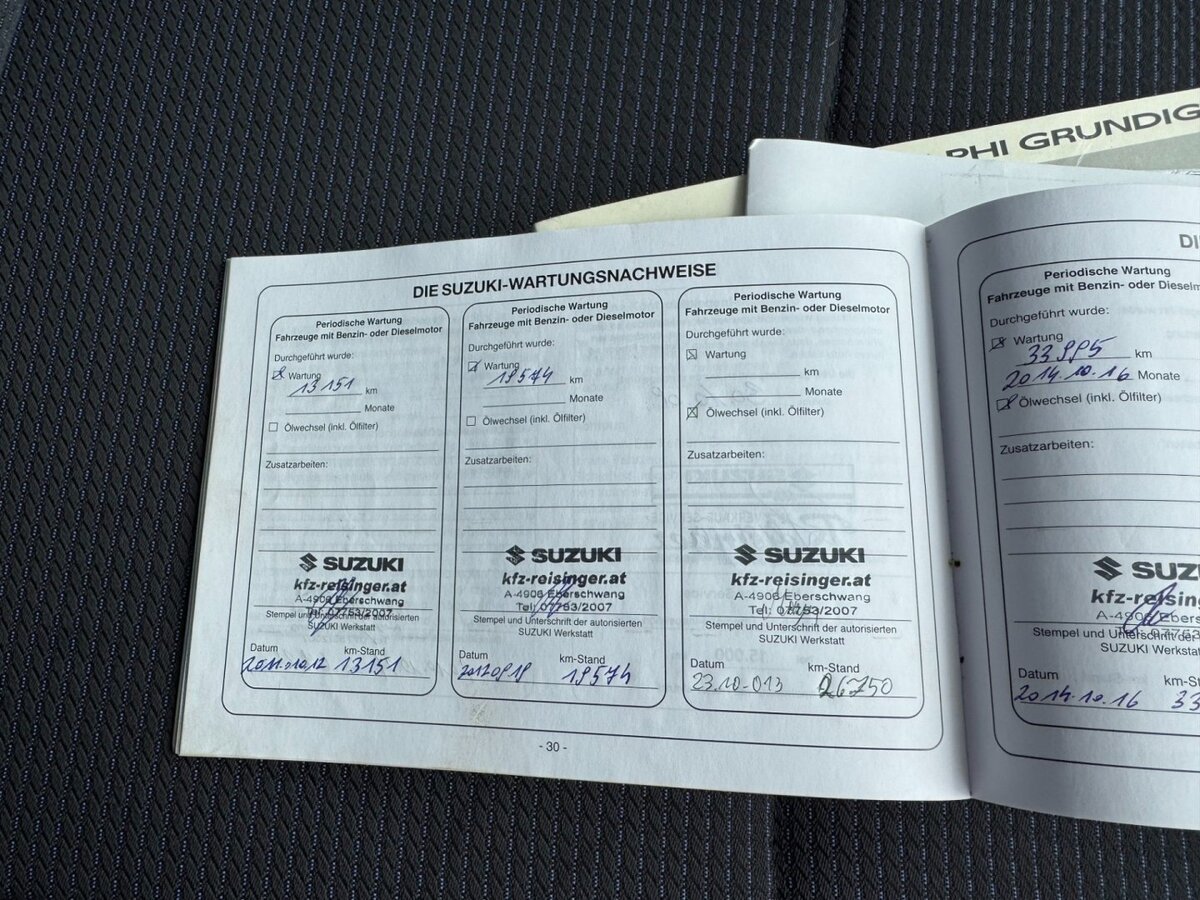 PHI GRUNDIG
DIE SUZUKI-WARTUNGSNACHWEISE
Periodische Wartung
Fahrzeuge mit Benzin- oder Dieselmotor
Durchgeführt wurde:
Wartung
13151 km
Monate
Ölwechsel (inkl. Ölfilter)
Zusatzarbeiten:
SUZUKI
kfz-reisinger.at
A-4906 Eberschwang
Tel. 07753/2007
Stempel und Unterschrift der autorisierten
SUZUKI Werkstatt
Datum km-Stand
2011.10.12 13151
Periodische Wartung
Fahrzeuge mit Benzin- oder Dieselmotor
Durchgeführt wurde:
Wartung
19574 km
Monate
Ölwechsel (inkl. Ölfilter)
Zusatzarbeiten:
SUZUKI
kfz-reisinger.at
A-4906 Eberschwang
Tel: 07753/2007
Stempel und Unterschrift der autorisierten
SUZUKI Werkstatt
Datum km-Stand
19574
Periodische Wartung
Fahrzeuge mit Benzin- oder Dieselmotor
Durchgeführt wurde:
Wartung
km
Monate
Ölwechsel (inkl. Ölfilter)
Zusatzarbeiten:
SUZUKI
kfz-reisinger.at
A-4906 Eberschwang
Tel: 07753/2007
Stempel und Unterschrift der autorisierten
SUZUKI Werkstatt
Datum km-Stand
23.10.013 26750
- 30 -
DI
Periodische Wartung
Fahrzeuge mit Benzin- oder Dieselm
Durchgeführt wurde:
Wartung
33995 km
2014.10.16 Monate
Ölwechsel (inkl. Ölfilter)
Zusatzarbeiten:
SUZU
kfz-reising
A-4906 Ebers
Stempel und Unterschrift der
SUZUKI Werksta
Datum km-St
2014.10.16 33